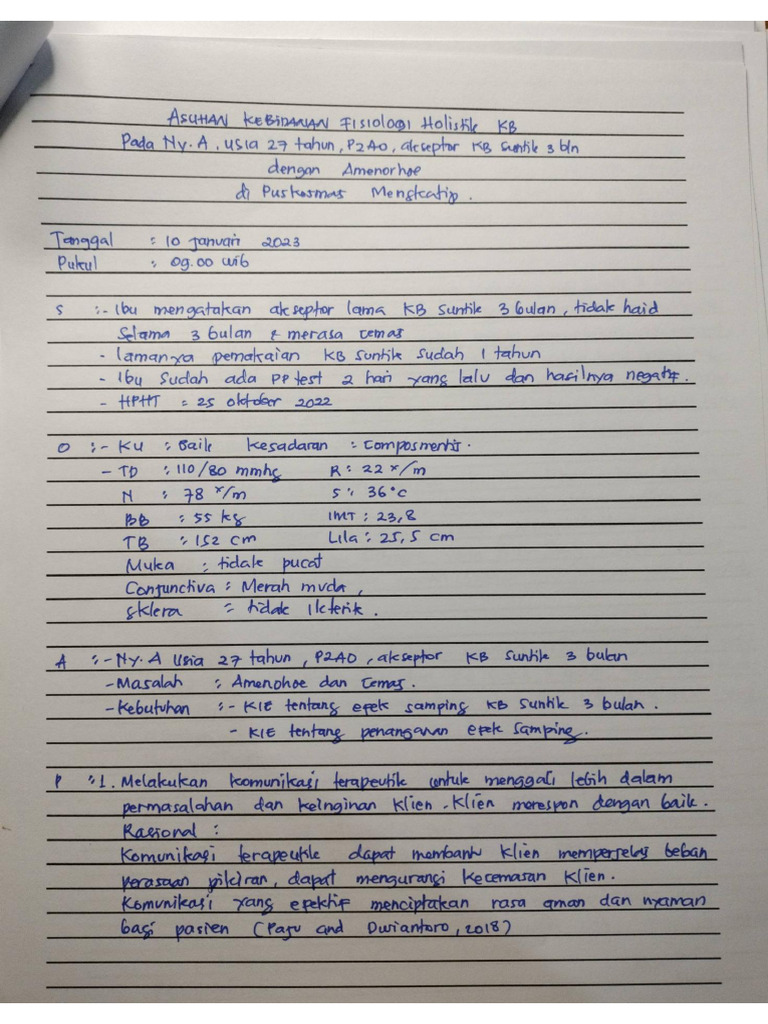 ASUHAN KEBIDANAN FISIOLOGI Holistik KB
Pada Ny. A, usia 27 tahun, P2A0, akseptor KB suntik 3 bln
dengan Amenorhoe
di Puskesmas Mengkatip.
Tanggal : 10 Januari 2023
Pukul : 09.00 wib
S :- Ibu mengatakan akseptor lama KB suntik 3 bulan, tidak haid
selama 3 bulan & merasa cemas
- lamanya pemakaian KB suntik sudah 1 tahun
- Ibu sudah ada PP test 2 hari yang lalu dan hasilnya negatif.
- HPHT = 25 oktober 2022
O :- KU : Baik Kesadaran : Composmentis.
- TD : 110/80 mmhg R : 22 x/m
N : 78 x/m S : 36°c
BB : 55 kg IMT : 23,8
TB : 152 cm Lila : 25,5 cm
Muka : tidak pucat
Conjunctiva : Merah muda,
sklera = tidak Ikterik.
A :- Ny. A usia 27 tahun, P2A0, akseptor KB suntik 3 bulan
- Masalah : Amenohoe dan Cemas.
- Kebutuhan :- KIE tentang efek samping KB suntik 3 bulan.
- KIE tentang penanganan efek samping.
P : 1. Melakukan komunikasi terapeutik untuk menggali lebih dalam
permasalahan dan keinginan klien. Klien merespon dengan baik.
Rasional :
Komunikasi terapeutik dapat membantu klien memperjelas beban
perasaan pikiran, dapat mengurangi kecemasan klien.
Komunikasi yang efektif menciptakan rasa aman dan nyaman
bagi pasien (Paju and Dwiantoro, 2018)